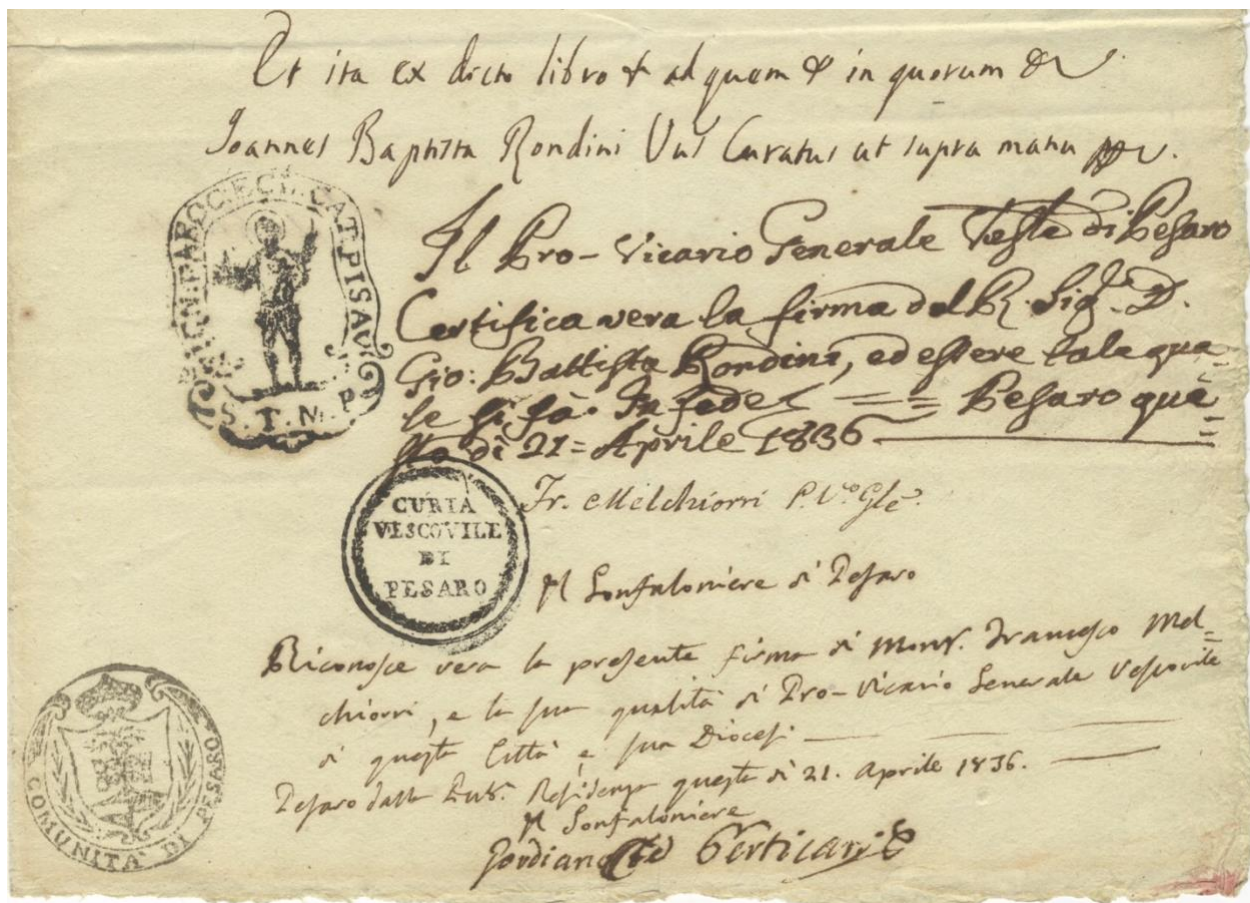 Et ita ex dicto libro & ad quem & in quorum &
Joannes Baptista Rondini Curatus ut supra manu
SIGN. PAROC. ECCL. CAT. PISAV.
S. T. M. P.
Il Pro-Vicario Generale di Pesaro
Certifica vera la firma del R. Sig. D.
Gio: Battista Rondini, ed essere tale qua-
le si fà. In fede == Pesaro que-
sto dì 21 = Aprile 1836
Fr. Melchiorri P. V.o Gle.
CURIA
VESCOVILE
DI
PESARO
Il Gonfaloniere di Pesaro
Riconosce vera la presente firma di Mons. Francesco Mel=
chiorri, e la sua qualità di Pro-Vicario Generale Vescovile
di questa Città e sua Diocesi.
Pesaro dalla Residenza questo dì 21. Aprile 1836.
Il Gonfaloniere
Gordiano Perticari
COMUNITA' DI PESARO